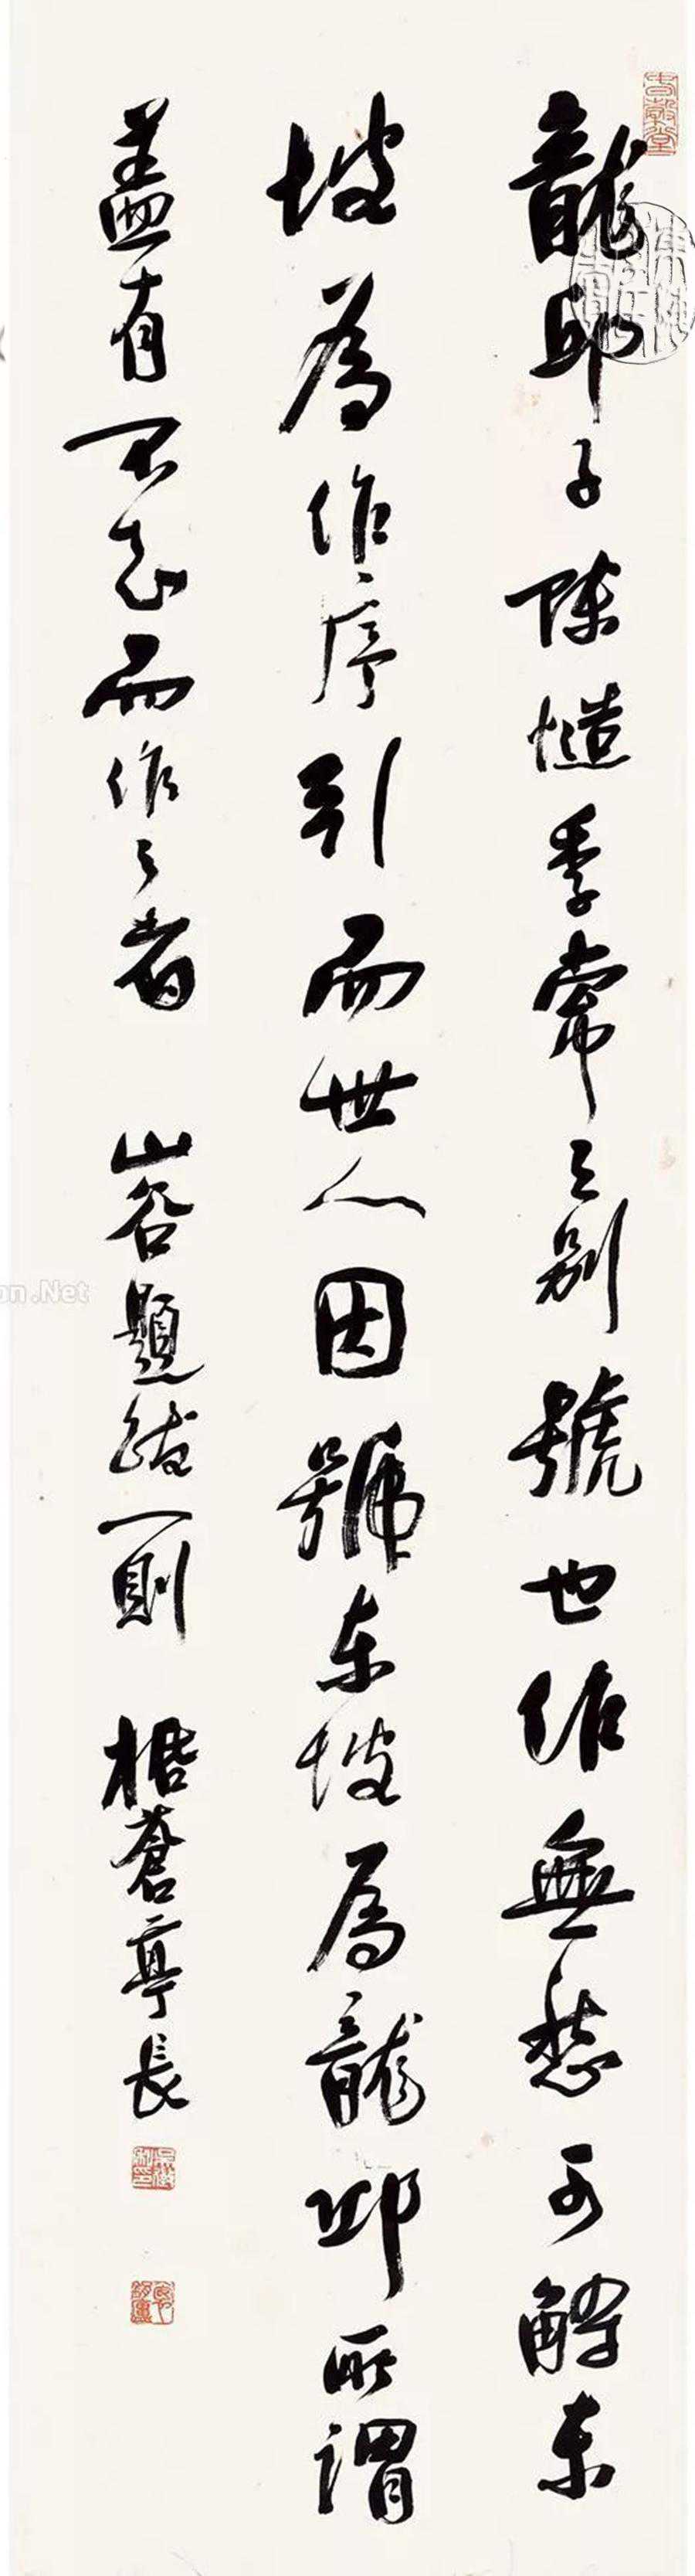 龍邱子陳慥季常之別號也作無愁可解東
坡為作序引而世人因號東坡為龍邱所謂
蓋有不知而作之者　山谷題跋一則　梧蒼亭長
on.Net